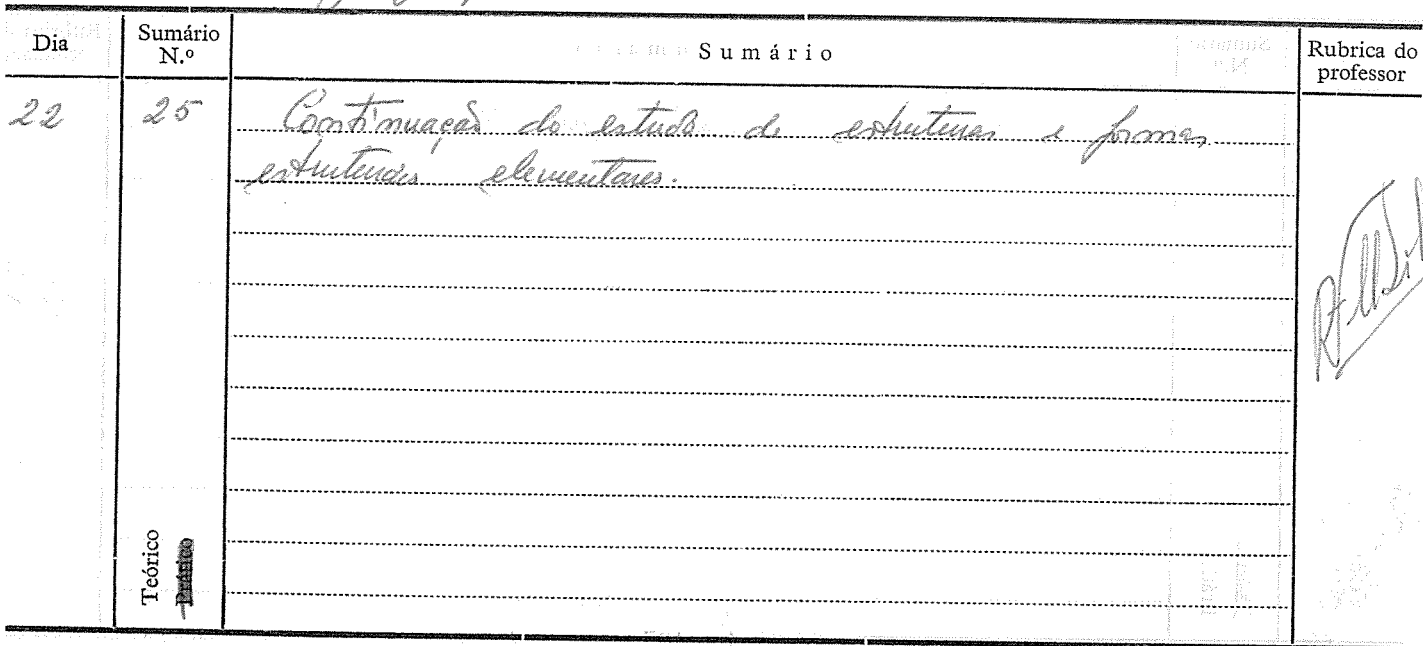 Dia
Sumário N.º
Sumário
Rubrica do professor
22
25
Continuação do estudo de estruturas e formas
estruturais elementares.
Teórico
Prático